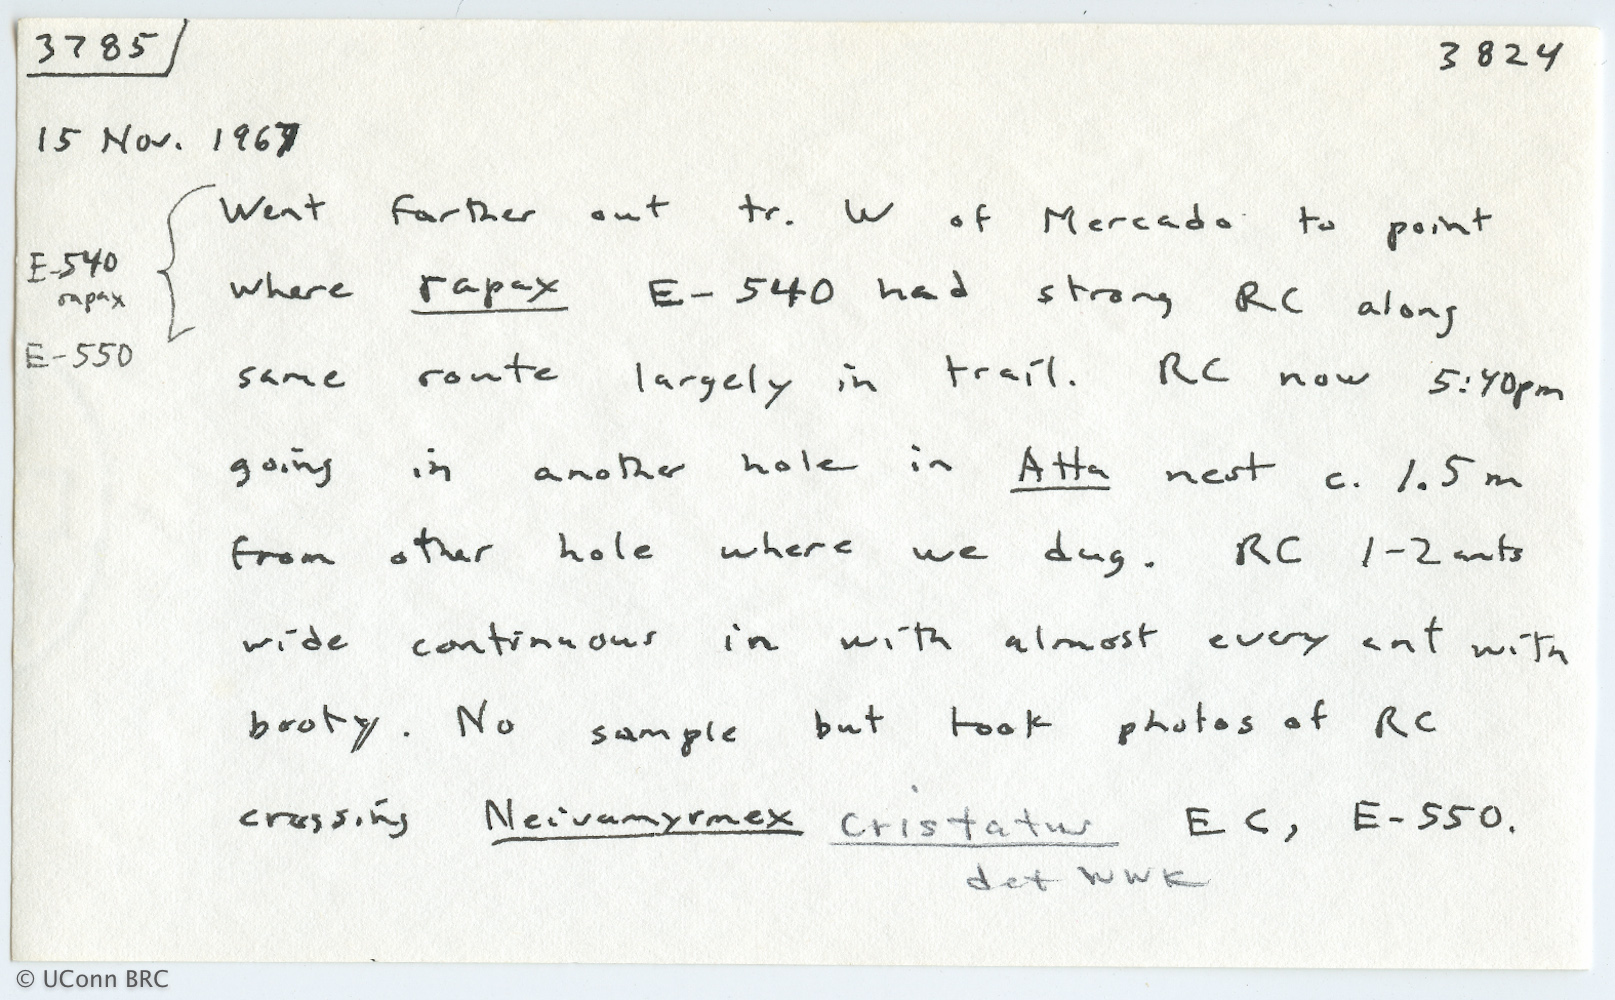 3785 3824
15 Nov. 1967
Went farther out tr. W of Mercado to point
E-540
rapax
where rapax E-540 had strong RC along
E-550
same route largely in trail. RC now 5:40pm
going in another hole in Atta nest c. 1.5m
from other hole where we dug. RC 1-2 ants
wide continuous in with almost every ant with
booty. No sample but took photos of RC
crossing Neivamyrmex cristatus EC, E-550.
det WWK
© UConn BRC